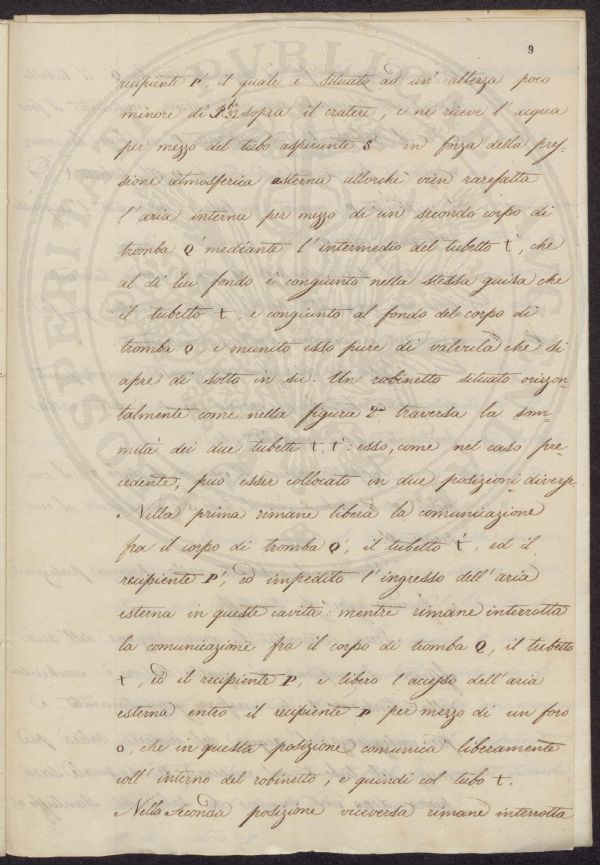 9
recipiente P', il quale è situato ad un' altezza poco
minore di P.di 32 sopra il cratere, e ne riceve l' acqua
per mezzo del tubo aspirante S' in forza della pres=
sione atmosferica esterna allorchè vien rarefatta
l' aria interna per mezzo di un secondo corpo di
tromba Q' mediante l' intermedio del tubetto t', che
al di lui fondo è congiunto nella stessa guisa che
il tubetto t, è congiunto al fondo del corpo di
tromba Q, e munito esso pure di valvula che si
apre di sotto in su. Un robinetto situato orizzon=
talmente come nella figura 2a traversa la som=
mità dei due tubetti t, t': esso, come nel caso pre=
cedente, può esser collocato in due posizioni diverse.
Nella prima rimane libera la comunicazione
fra il corpo di tromba Q', il tubetto t', ed il
recipiente P', ed impedito l' ingresso dell' aria
esterna in queste cavità: mentre rimane interrotta
la comunicazione fra il corpo di tromba Q, il tubetto
t, ed il recipiente P, e libero l' accesso dell' aria
esterna entro il recipiente P per mezzo di un foro
o, che in questa posizione comunica liberamente
coll' interno del robinetto, e quindi col tubo t.
Nella seconda posizione viceversa rimane interrotta